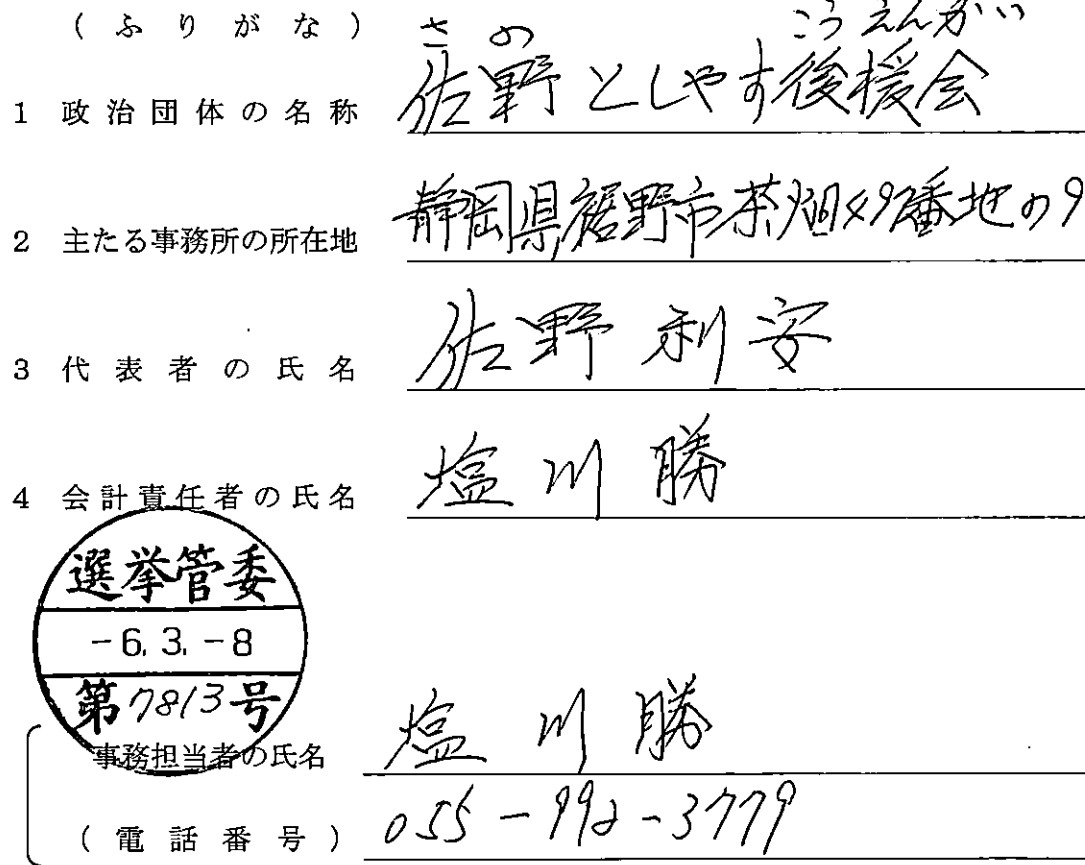 (ふりがな) さの こうえんかい
1 政治団体の名称 佐野としやす後援会
2 主たる事務所の所在地 静岡県裾野市茶畑49番地の9
3 代表者の氏名 佐野利安
4 会計責任者の氏名 塩川勝
選挙管委
-6.3.-8
第7813号
事務担当者の氏名 塩川勝
(電話番号) 055-992-3779